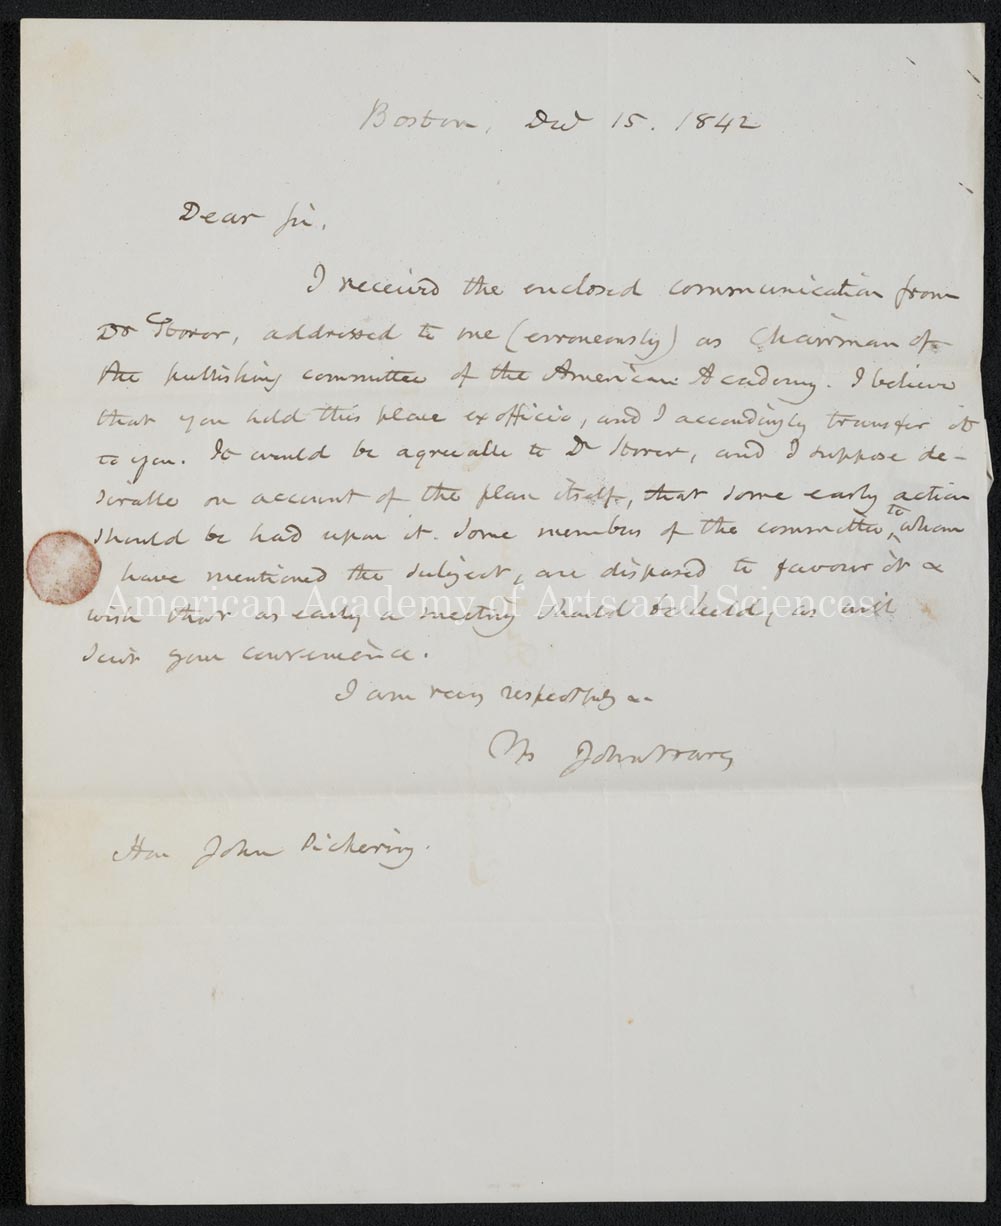 Boston, Dec 15. 1842
Dear Sir,
I received the enclosed communication from
Dr Storer, addressed to me (erroneously) as Chairman of
the publishing committee of the American Academy. I believe
that you hold this place ex officio, and I accordingly transfer it
to you. It would be agreeable to Dr Storer, and I suppose de-
sirable on account of the plan itself, that some early action
should be had upon it. Some members of the committee, to whom
have mentioned the subject, are disposed to favour it &
wish that as early a meeting should be held, as will
suit your convenience.
I am very respectfully
Yrs John Ware
Hon John Pickering.
American Academy of Arts and Sciences